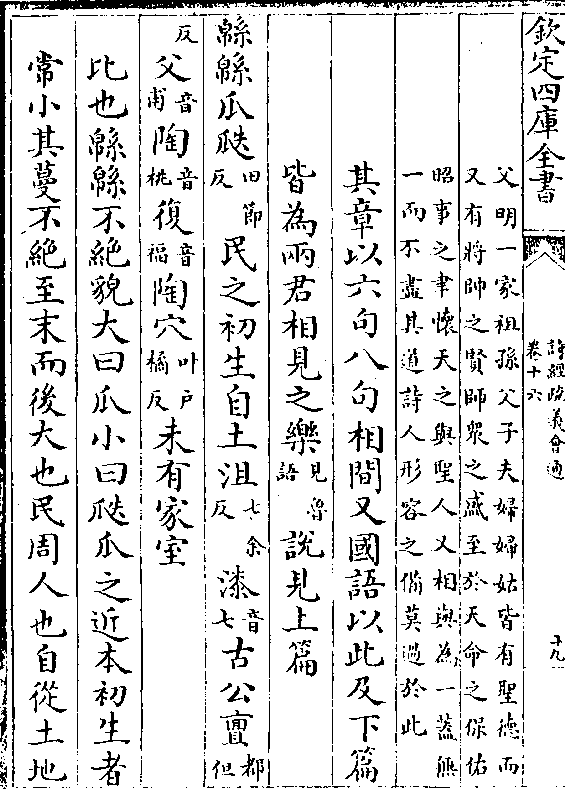 欽定四庫全書
詩經疏義會通
卷十六
十九
父明一家祖孫父子夫婦婦姑皆有聖德而
又有將帥之賢師衆之盛至於天命之保佑
昭事之聿懷天之與聖人又相與為一蓋無
一而不盡其道詩人形容之備莫過於此
其章以六句八句相間又國語以此及下篇
皆為兩君相見之樂見魯語說見上篇
緜緜瓜瓞田節反民之初生自土沮七余反漆音七古公亶都但
反父音甫陶音桃復音福陶穴叶戶橘反未有家室
比也緜緜不絕貌大曰瓜小曰瓞瓜之近本初生者
常小其蔓不絕至末而後大也民周人也自從土地